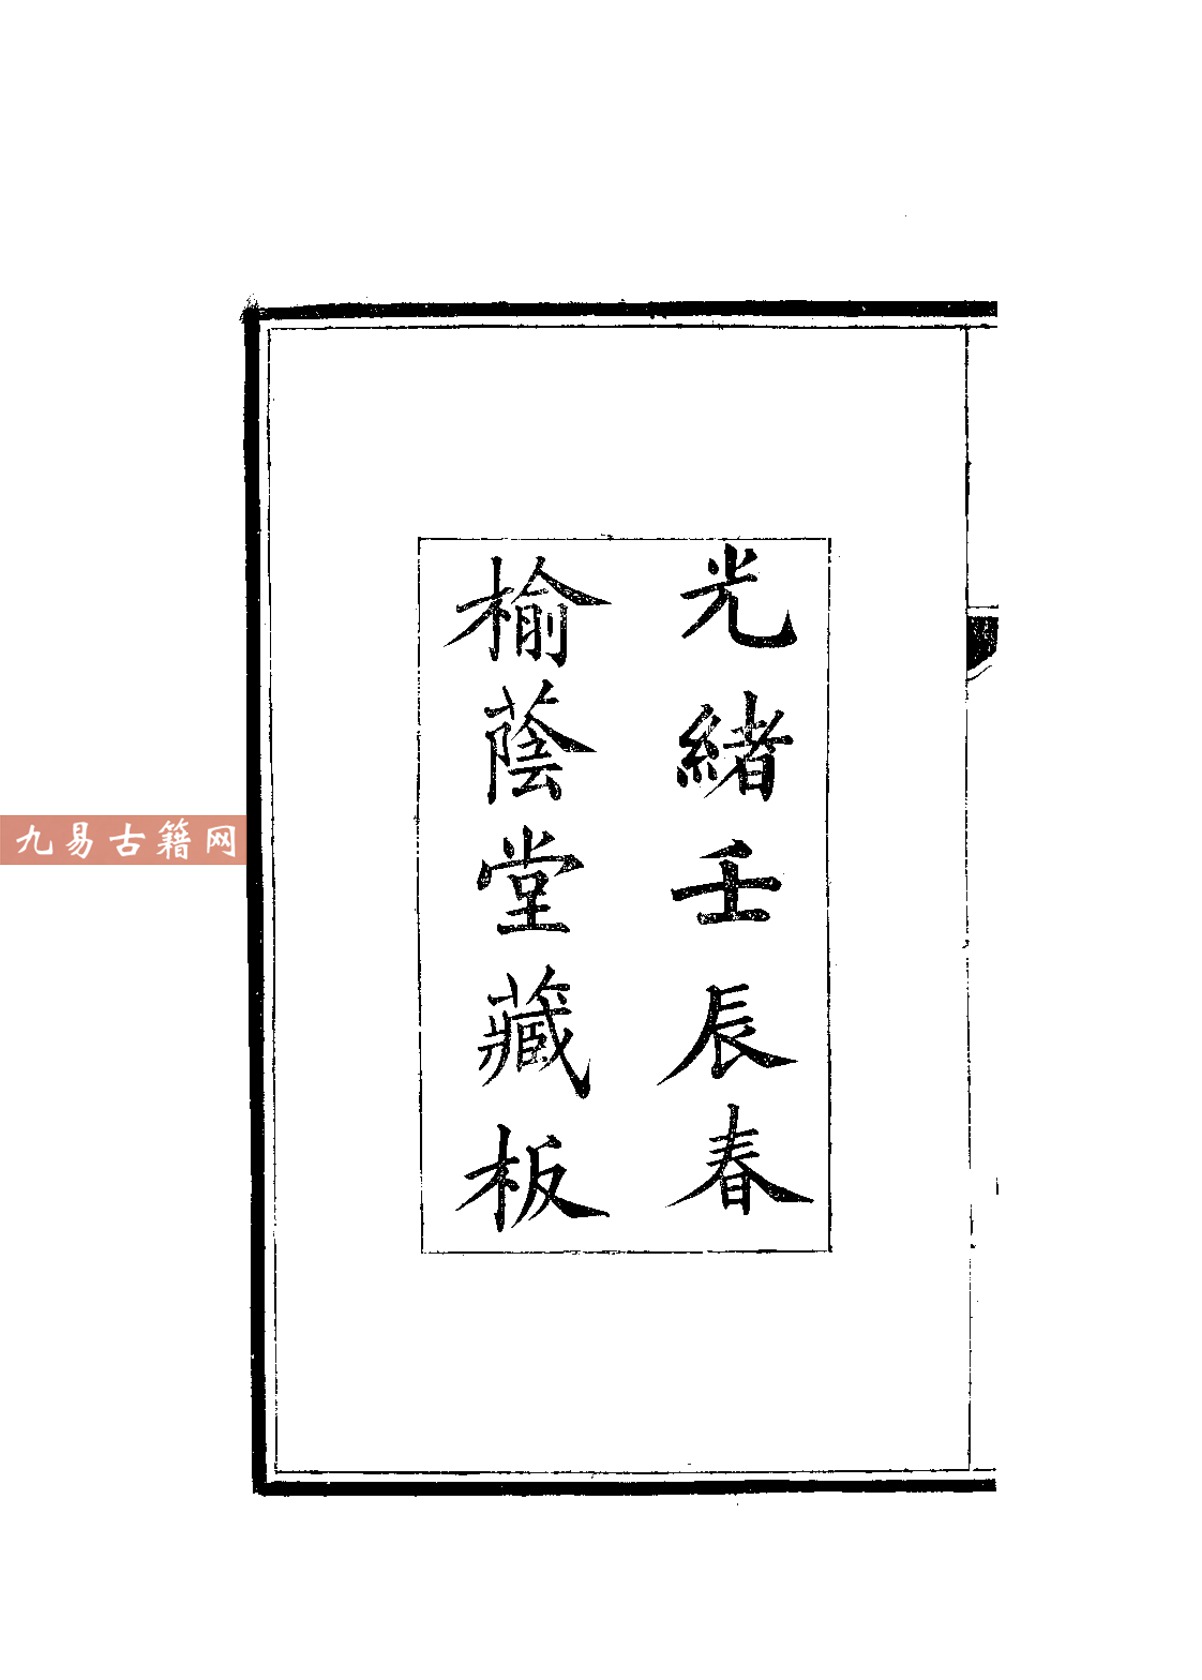 光緒壬辰春
榆蔭堂藏板
九易古籍网